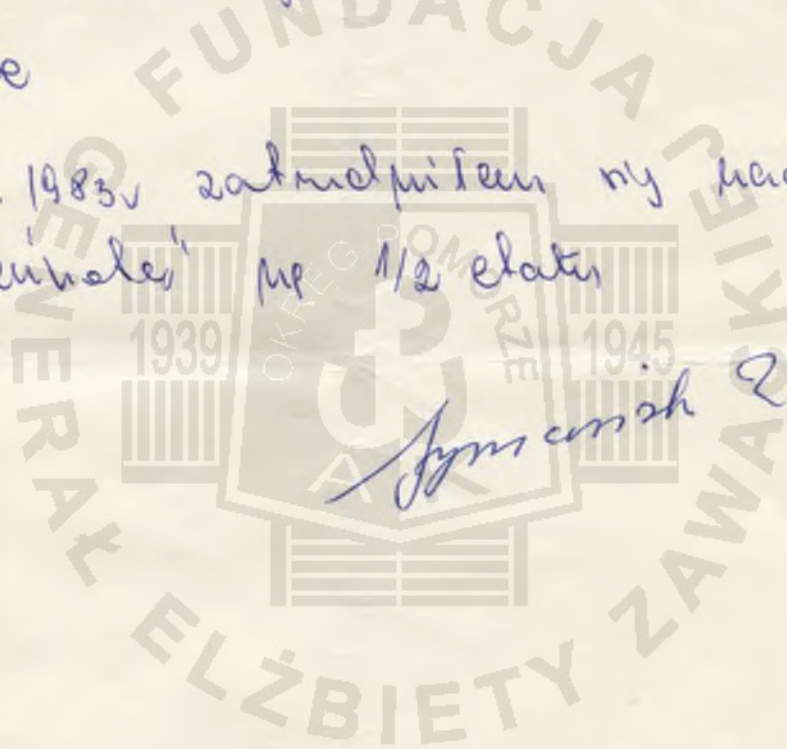 e
1983r zatrudniłem się
na 1/2 etatu
Szymaniak Z
FUNDACJA
GENERAŁ ELŻBIETY ZAWACKIEJ
OKRĘG POMORZE
1939
1945
AK